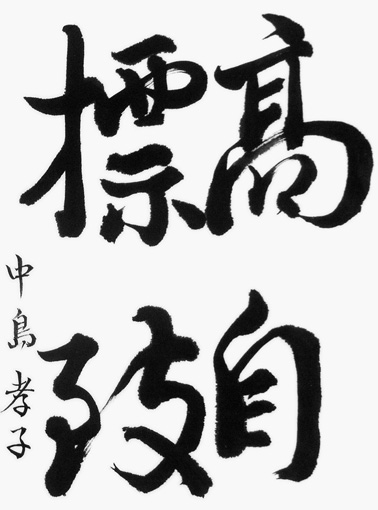 高自
標致
中島孝子